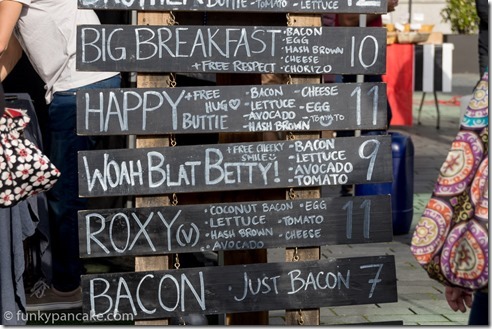 BUTTIE · TOMATO · LETTUCE 12
BIG BREAKFAST · BACON 10
· EGG
· HASH BROWN
· CHEESE
+ FREE RESPECT · CHORIZO
HAPPY + FREE · BACON · CHEESE 11
HUG · LETTUCE · EGG
BUTTIE · AVOCADO · TOMATO
· HASH BROWN
WOAH BLAT BETTY! + FREE CHEEKY SMILE · BACON 9
· LETTUCE
· AVOCADO
· TOMATO
ROXY (V) · COCONUT BACON · EGG 11
· LETTUCE · TOMATO
· HASH BROWN · CHEESE
· AVOCADO
BACON · JUST BACON 7
©funkypancake.com